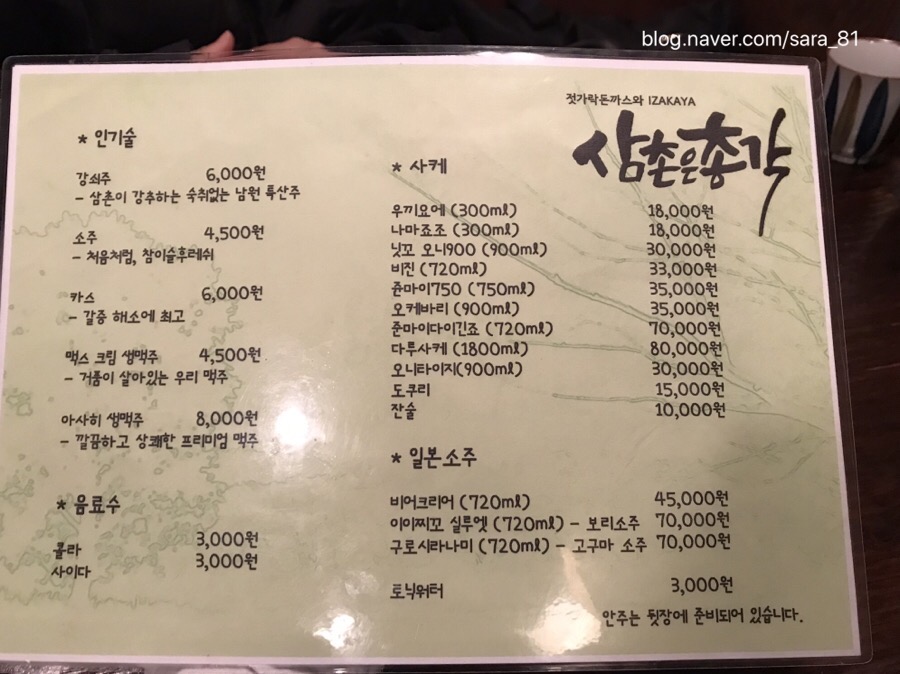 blog.naver.com/sara_81
젓가락돈까스와 IZAKAYA
삼촌은총각
* 인기술
강쇠주 6,000원
- 삼촌이 강추하는 숙취없는 남원 특산주
소주 4,500원
- 처음처럼, 참이슬후레쉬
카스 6,000원
- 갈증 해소에 최고
맥스 크림 생맥주 4,500원
- 거품이 살아있는 우리 맥주
아사히 생맥주 8,000원
- 깔끔하고 상쾌한 프리미엄 맥주
* 음료수
콜라 3,000원
사이다 3,000원
* 사케
우끼요에 (300㎖) 18,000원
나마죠조 (300㎖) 18,000원
닛꼬 오니900 (900㎖) 30,000원
비진 (720㎖) 33,000원
쥰마이750 (750㎖) 35,000원
오케바리 (900㎖) 35,000원
준마이다이긴죠 (720㎖) 70,000원
다루사케 (1800㎖) 80,000원
오니타이지(900㎖) 30,000원
도쿠리 15,000원
잔술 10,000원
* 일본소주
비어크리어 (720㎖) 45,000원
이이찌꼬 실루엣 (720㎖) - 보리소주 70,000원
구로시라나미 (720㎖) - 고구마 소주 70,000원
토닉워터 3,000원
안주는 뒷장에 준비되어 있습니다.